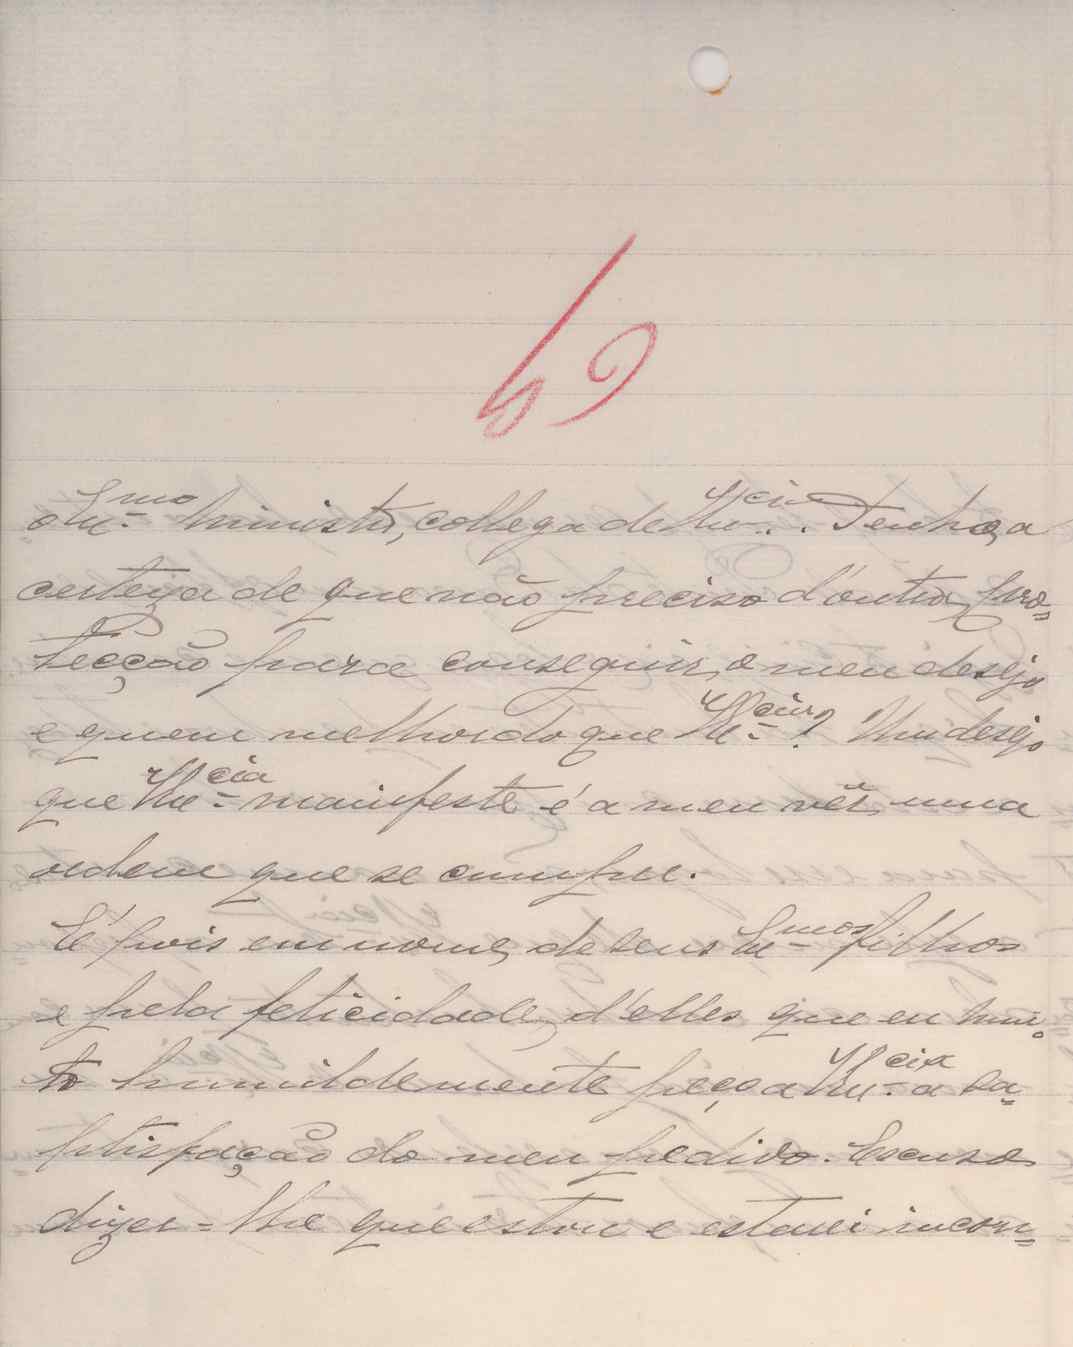 o Ex.mo Ministro, collega de V.Ex.cia. Tenho a
certeza de que não preciso d'outra pro-
tecção para conseguir o meu desejo
e quem melhor do que V.Ex.cia? Um desejo
que V.Ex.cia manifeste é a meu vêr uma
ordem que se cumpre.
É pois em nome de seus Ex.mos filhos
e pela felicidade d'elles que eu mui-
to humildemente peço a V.Ex.cia a sa-
ptisfação do meu pedido. Escuso
dizer-lhe que estou e estarei incon-